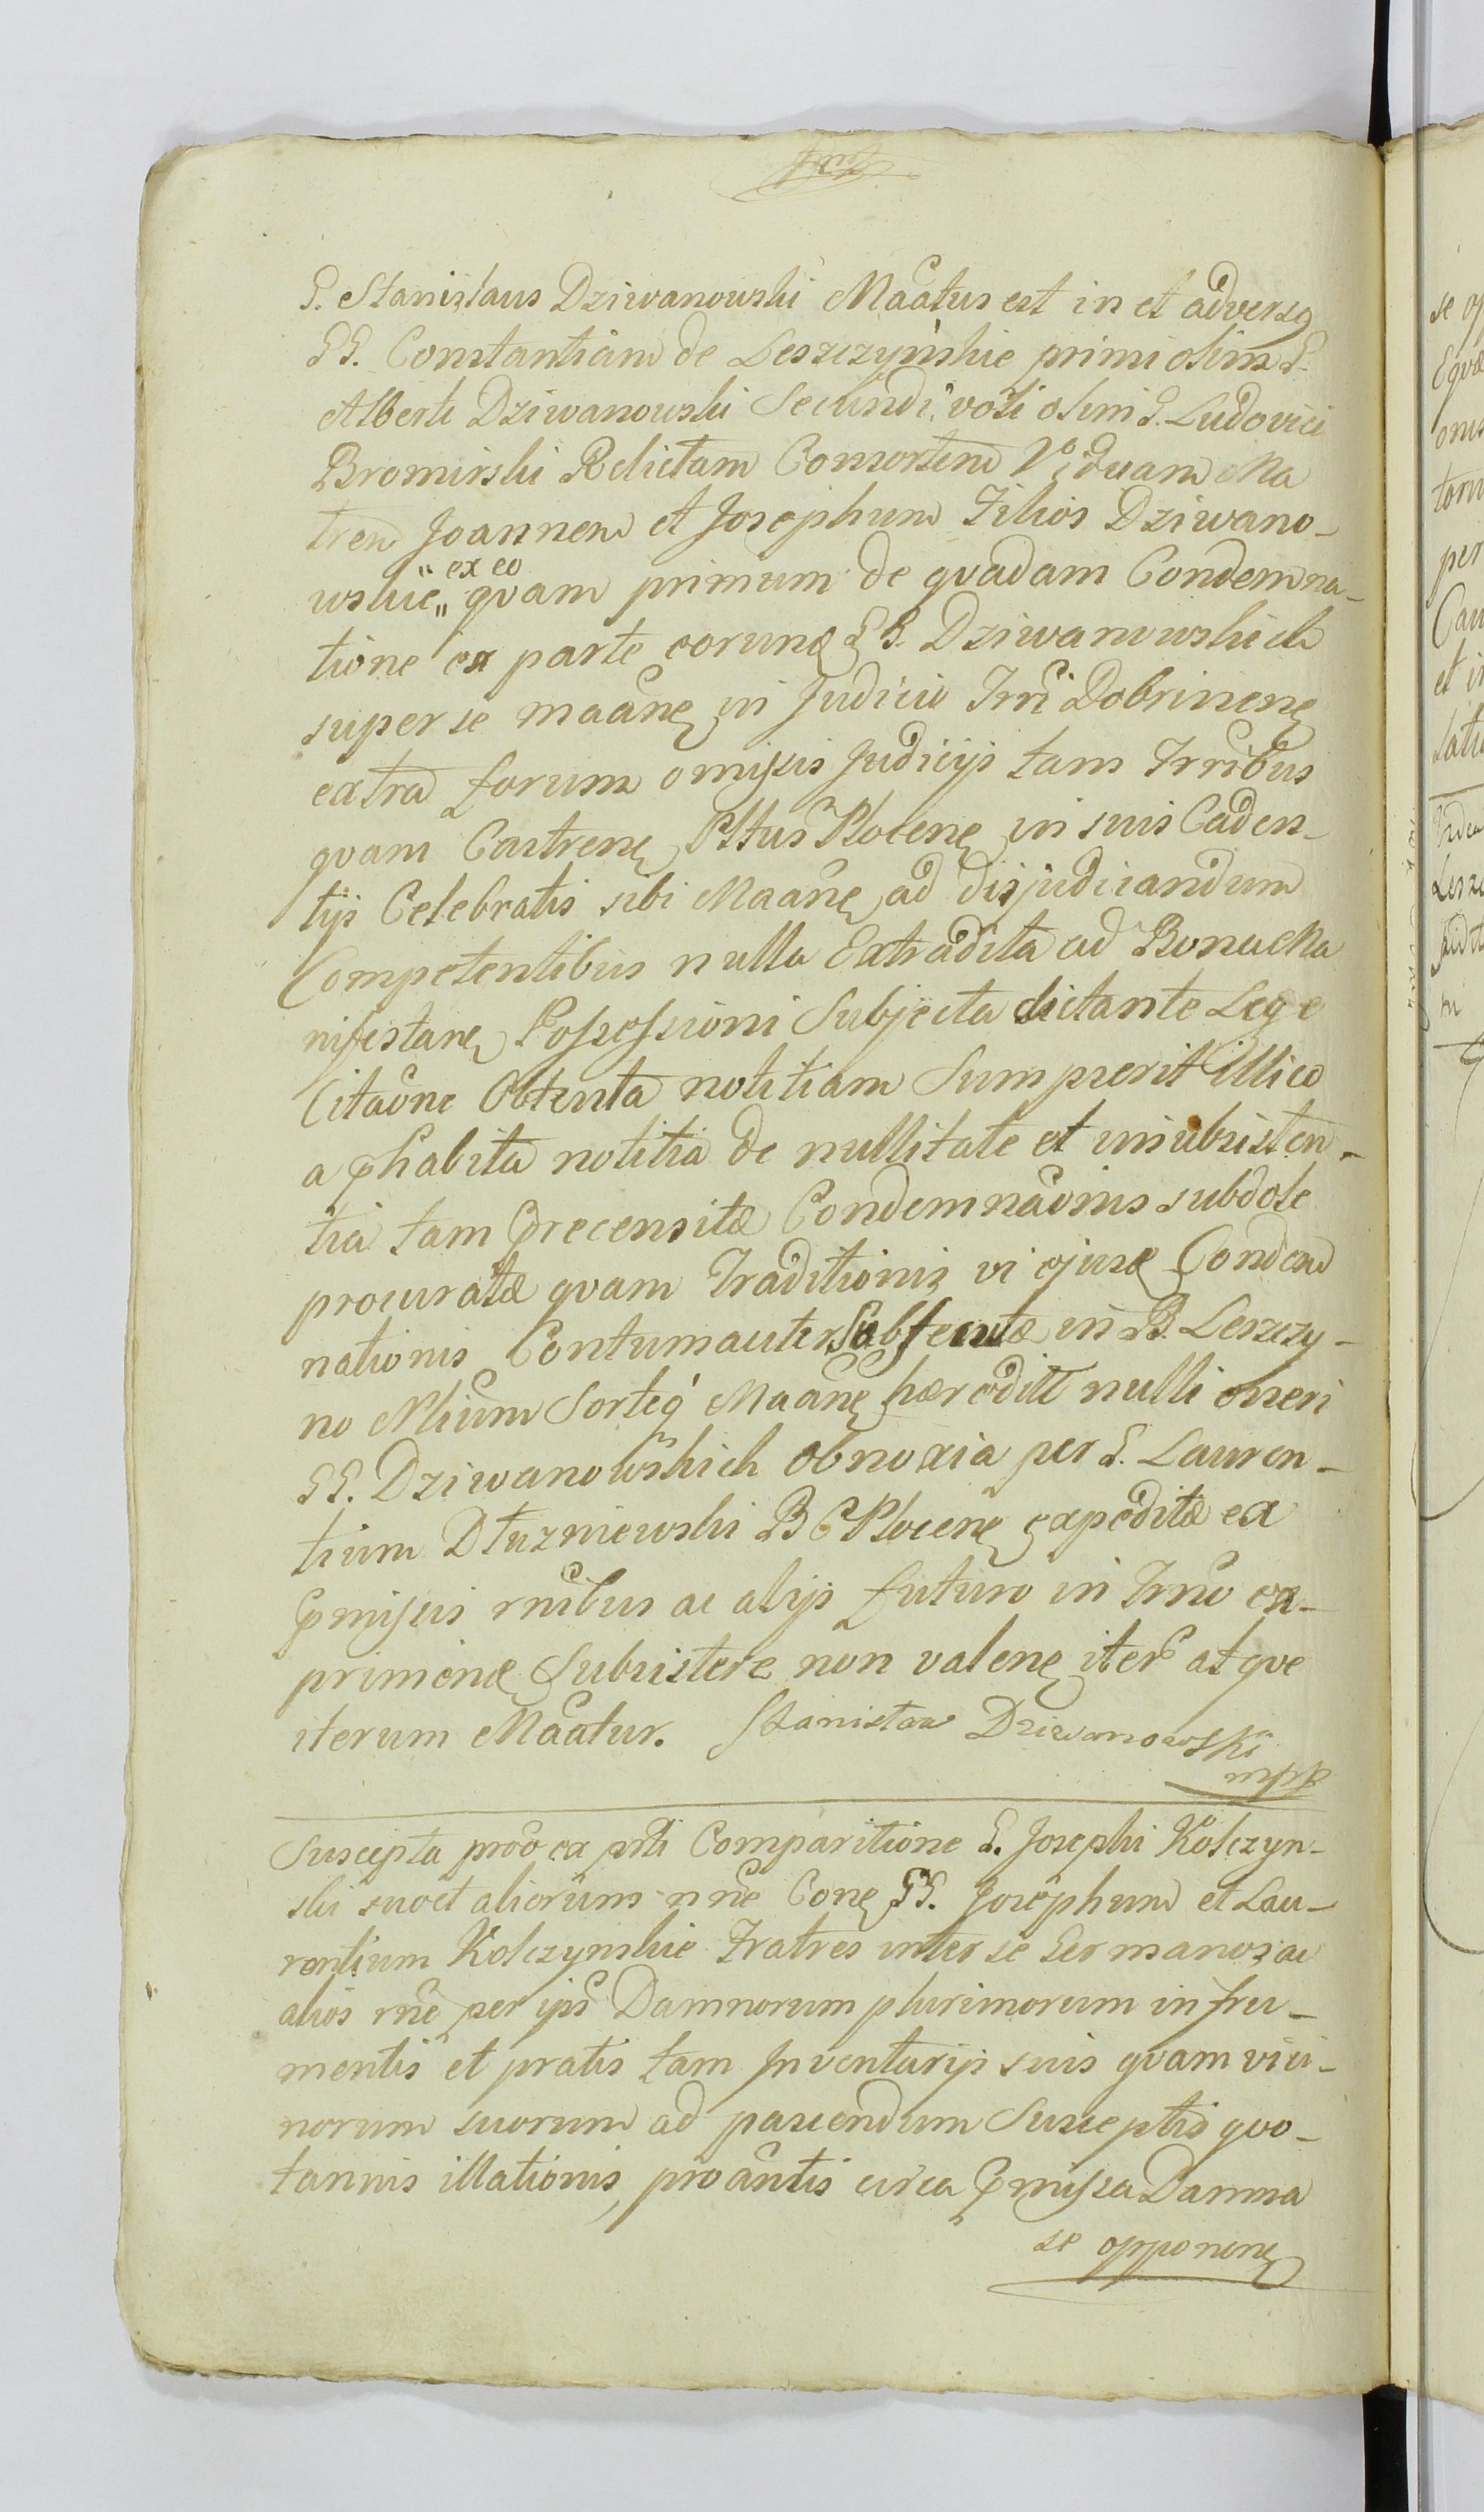 G. Stanislaus Dziwanowski Maatus est in et adversq
GG. Constantiam de Leszczynskie primi olim G.
Alberti Dziwanowski Secundi voti olim G. Ludovici
Bromirski Relictam Consortem Viduam Ma
trem Joannem et Josephum Filios Dziwano-
wskie „ex eo„ quam primum de quadam Condemna-
tione ex parte eorund GG. Dziwanowskich
super se maane in Judicio Trri Dobrinen
extra forum omissis Judicijs tam Trribus
quam Castren Pltus Plocen in suis Caden-
tijs Celebratis sibi Maane ad disjudicandum
Competentibus nulla Extradita ad Bona Ma
nifestan Possessioni Subjecta dictante Lege
Citaone Obtenta notitiam Sumpserit illico
a phabita notitia de nullitate et insubsisten-
tia tam precensitæ Condemnaonis subdole
procuratæ quam Traditionis vi ejusd Condem
nationis Contumaciter Subsecutæ in B. Leszczy-
no Nlium Sorteq Maane hæreditt nulli oneri
GG. Dziwanowskich obnoxia per G. Lauren-
tium Dłuzniewski B C Plocen expeditæ ex
pmissis rnibus ac alijs futuro in Trno ex-
primend Subsistere non valen iter atque
iterum Maatur. Stanisław Dziwanowski
mpp
Suscepta proo ex prti Comparitione G. Josephi Kolczyn-
ski suo et aliorum nne Con GG. Josephum et Lau-
rentium Kolczynskie Fratres inter se Germanos ac
alios rne per ips Damnorum plurimorum in fru-
mentis et pratis tam Inventarijs suis quam vici-
norum suorum ad pascendum Susceptis quo-
tannis illationis, proantis circa pmissa Damna
se opponen